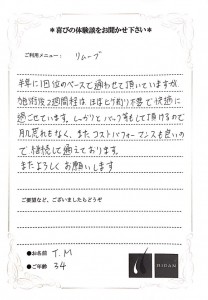 ＊喜びの体験談をお聞かせ下さい＊
ご利用メニュー： リムーブ
半年に1回位のペースで通わせて頂いていますが、
施術後2週間程はほぼヒゲ剃り不要で快適に
過ごせています。しっかりとパックもして頂けるので
肌荒れもなく、またコストパフォーマンスも良いの
で継続して通えております。
またよろしくお願いします
ご要望など、ございましたらどうぞ
●お名前 T.M
●ご年齢 34
HIRAN